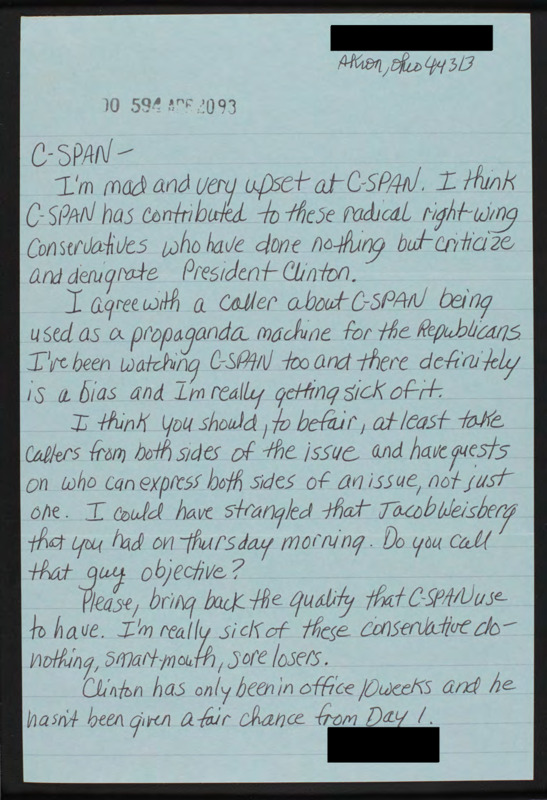 Akron, Ohio 44313
00 594 APR 2093
C-SPAN-
I'm mad and very upset at C-SPAN. I think
C-SPAN has contributed to these radical right-wing
Conservatives who have done nothing but criticize
and denigrate President Clinton.
I agree with a caller about C-SPAN being
used as a propaganda machine for the Republicans.
I've been watching C-SPAN too and there definitely
is a bias and Im really getting sick of it.
I think you should, to be fair, at least take
callers from both sides of the issue and have guests
on who can express both sides of an issue, not just
one. I could have strangled that Jacob Weisberg
that you had on thursday morning. Do you call
that guy objective?
Please, bring back the quality that C-SPAN use
to have. I'm really sick of these conservative do-
nothing, smart-mouth, sore losers.
Clinton has only been in office 10 weeks and he
hasn't been given a fair chance from Day 1.